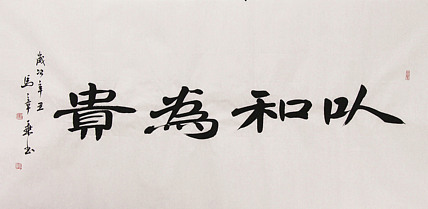 以和為貴
歲次辛丑
馬章乘书